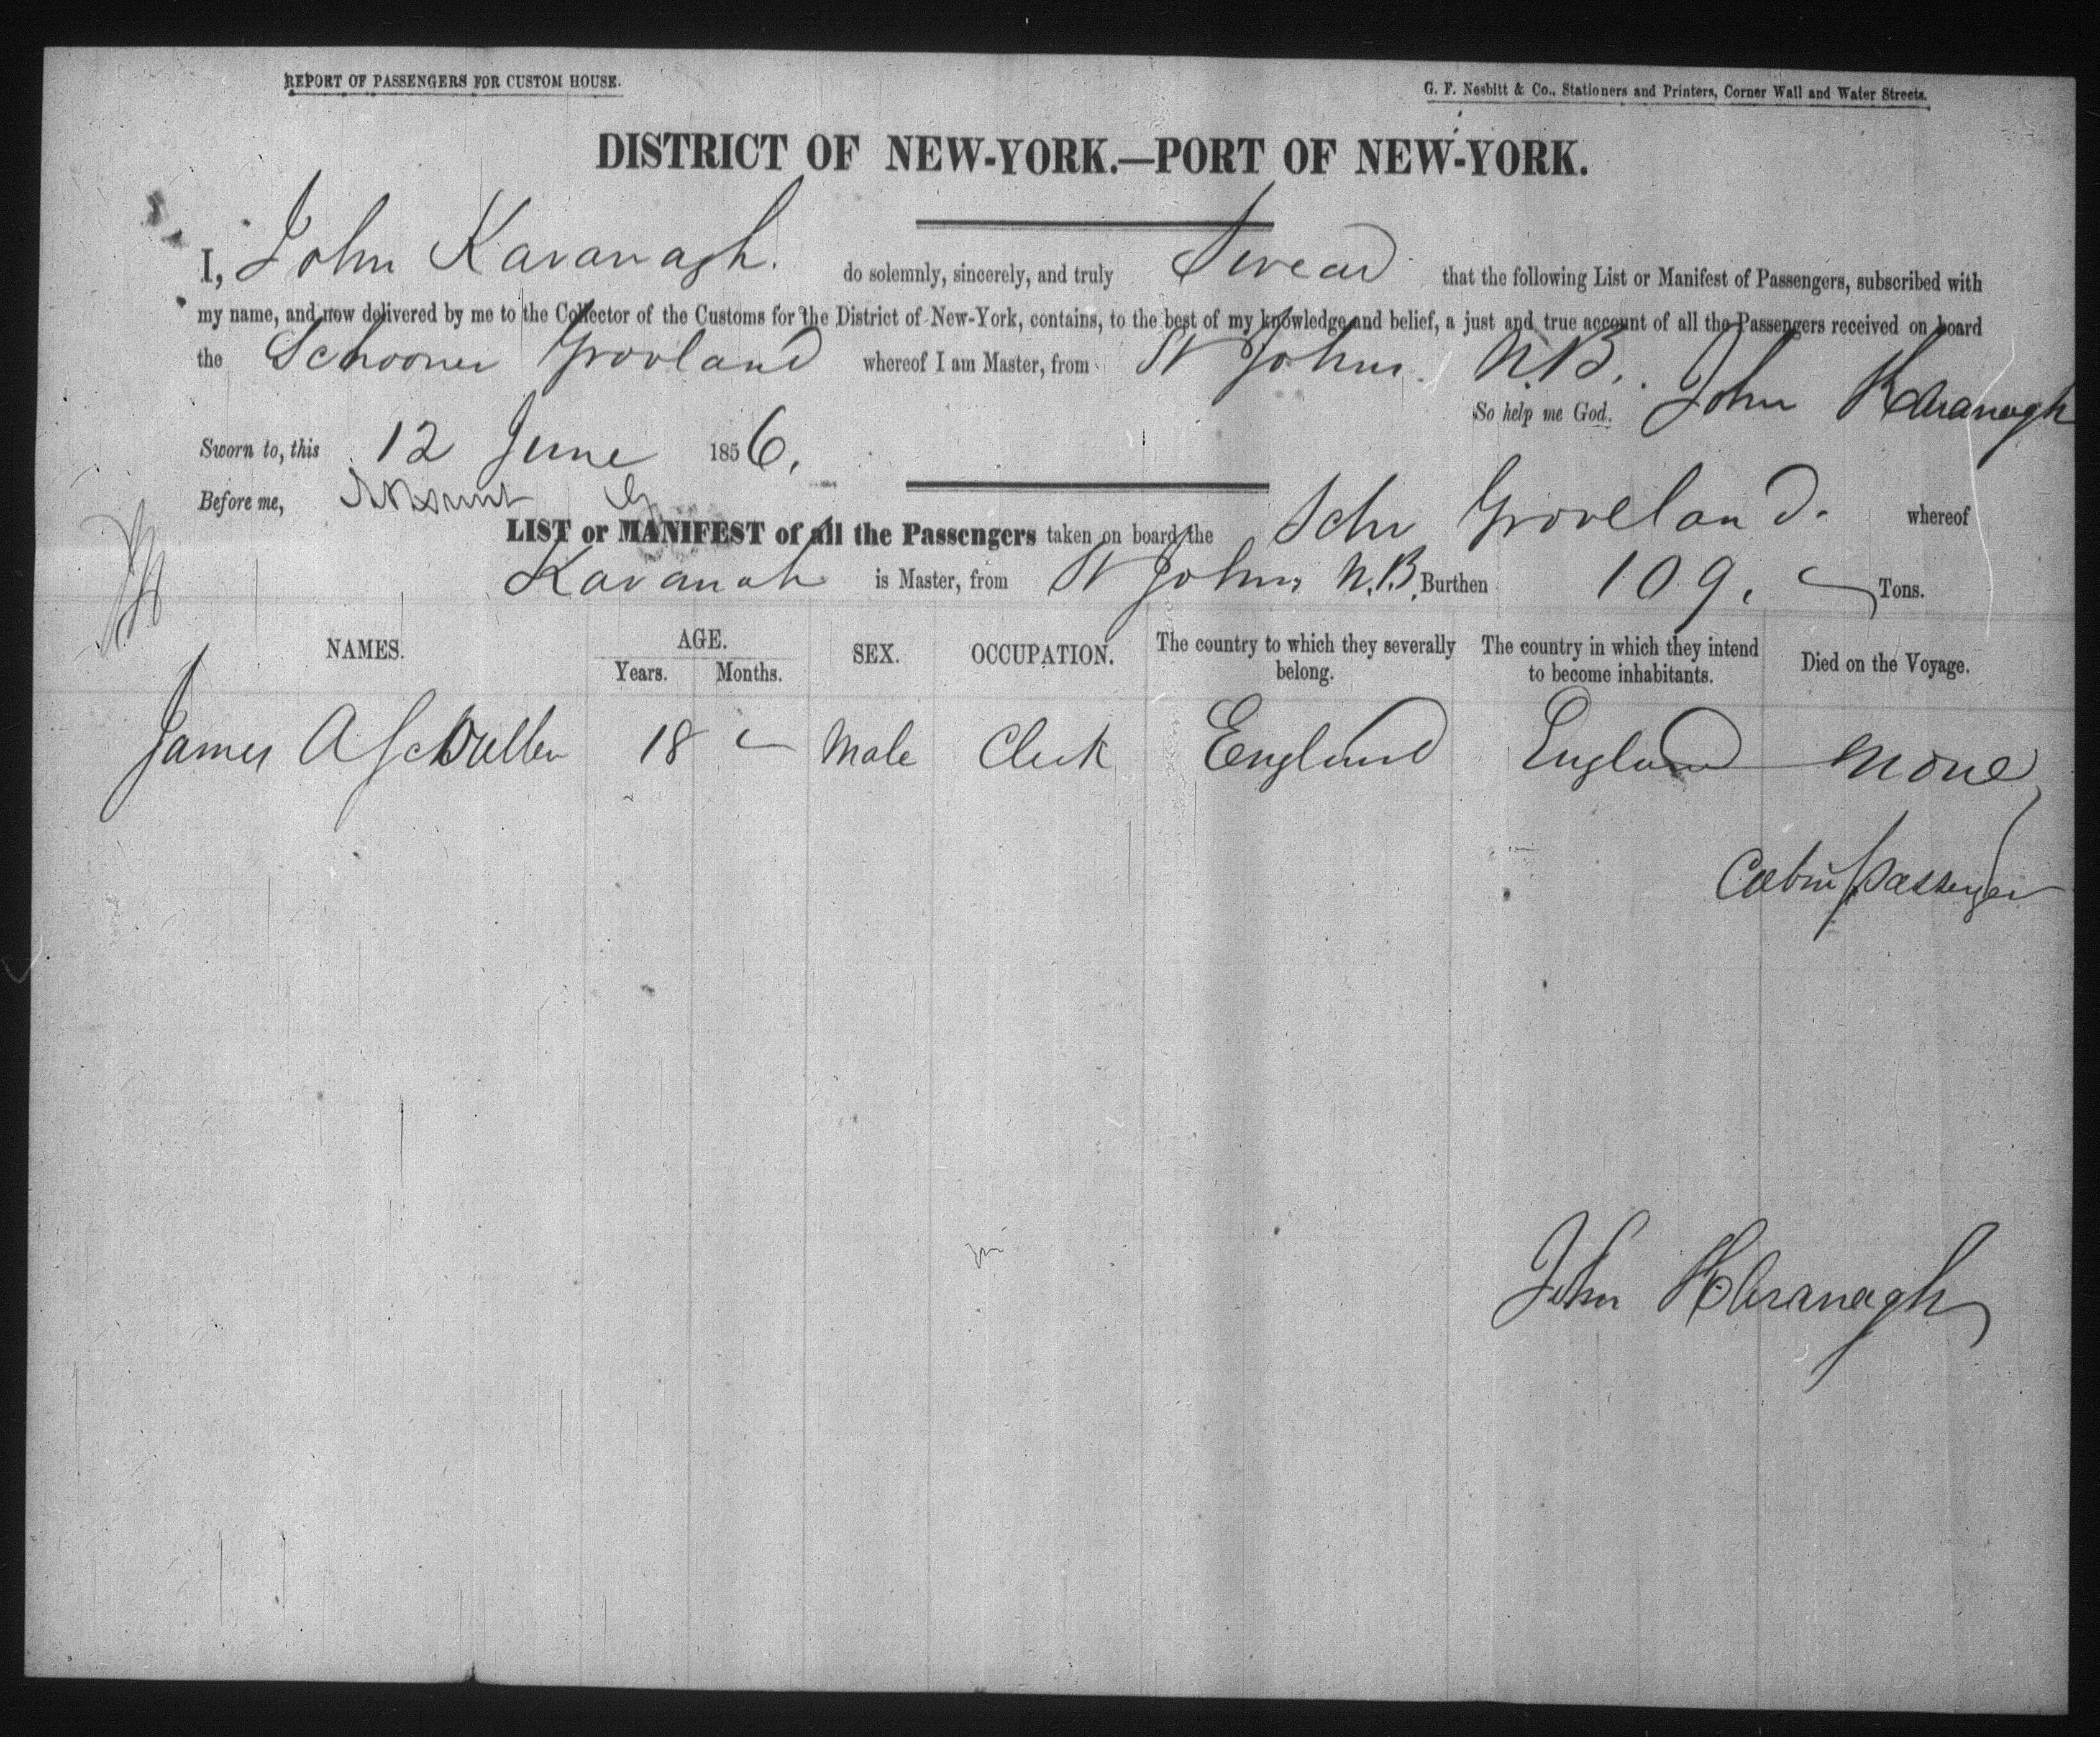 REPORT OF PASSENGERS FOR CUSTOM HOUSE.
G. F. Nesbitt & Co., Stationers and Printers, Corner Wall and Water Streets.
DISTRICT OF NEW-YORK.—PORT OF NEW-YORK.
I, John Kavanagh. do solemnly, sincerely, and truly Swear that the following List or Manifest of Passengers, subscribed with
my name, and now delivered by me to the Collector of the Customs for the District of New-York, contains, to the best of my knowledge and belief, a just and true account of all the Passengers received on board
the Schooner Grovland whereof I am Master, from St Johns. N.B.
So help me God. John Kavanagh
Sworn to, this 12 June 1856.
Before me,
LIST or MANIFEST of all the Passengers taken on board the Schr Groveland. whereof
Kavanah is Master, from St Johns N.B. Burthen 109. Tons.
NAMES. AGE. SEX. OCCUPATION. The country to which they severally belong. The country in which they intend to become inhabitants. Died on the Voyage.
Years. Months.
James A 18 Male Clerk England England None
Cabin Passenger
John Kavanagh